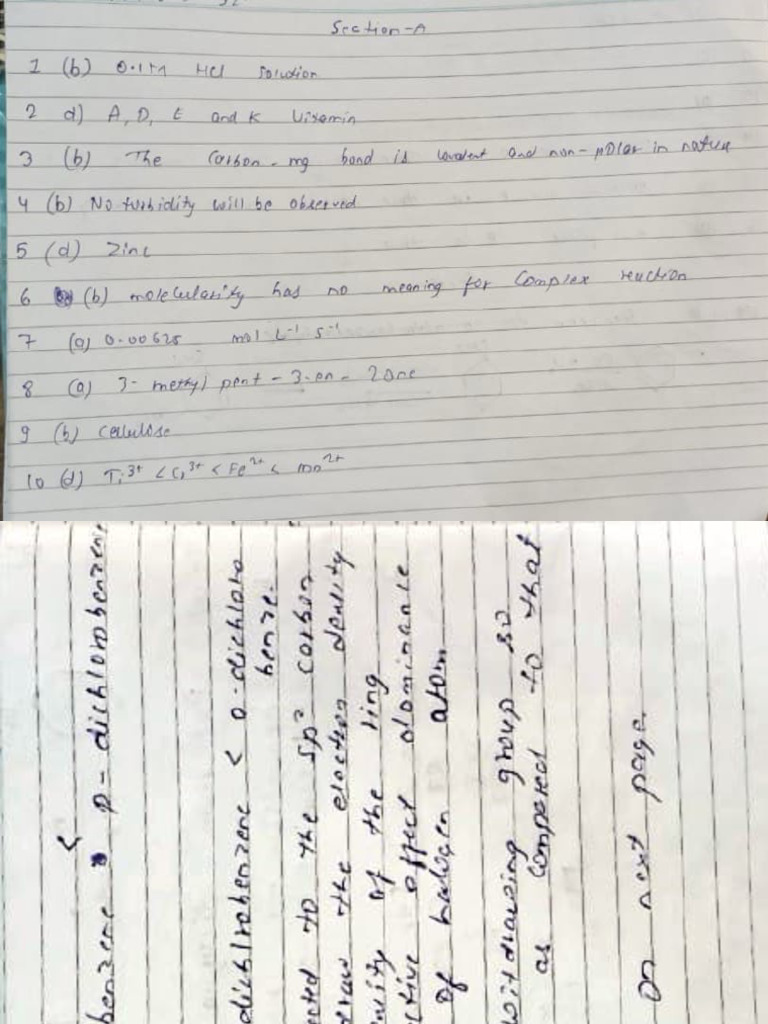 Section-A
1 (b) 0.1M HCl solution
2 d) A, D, E and K Vitamin
3 (b) The Carbon-mg bond is covalent and non-polar in nature
4 (b) No turbidity will be observed
5 (d) Zinc
6 (b) molecularity has no meaning for Complex reaction
7 (a) 0.00625 mol L⁻¹ s⁻¹
8 (a) 3-methyl pent-3-en-2one
9 (b) Cellulose
10 (d) Ti³⁺ < Cr³⁺ < Fe²⁺ < mn²⁺
<
benzene p-dichlorobenzene
dichlrobenzene < o-dichloro
benze.
to the sp² carbon
the election density
of the ring
effect dominance
of halogen atom
witdrawing group so
as compered to that
on next page.